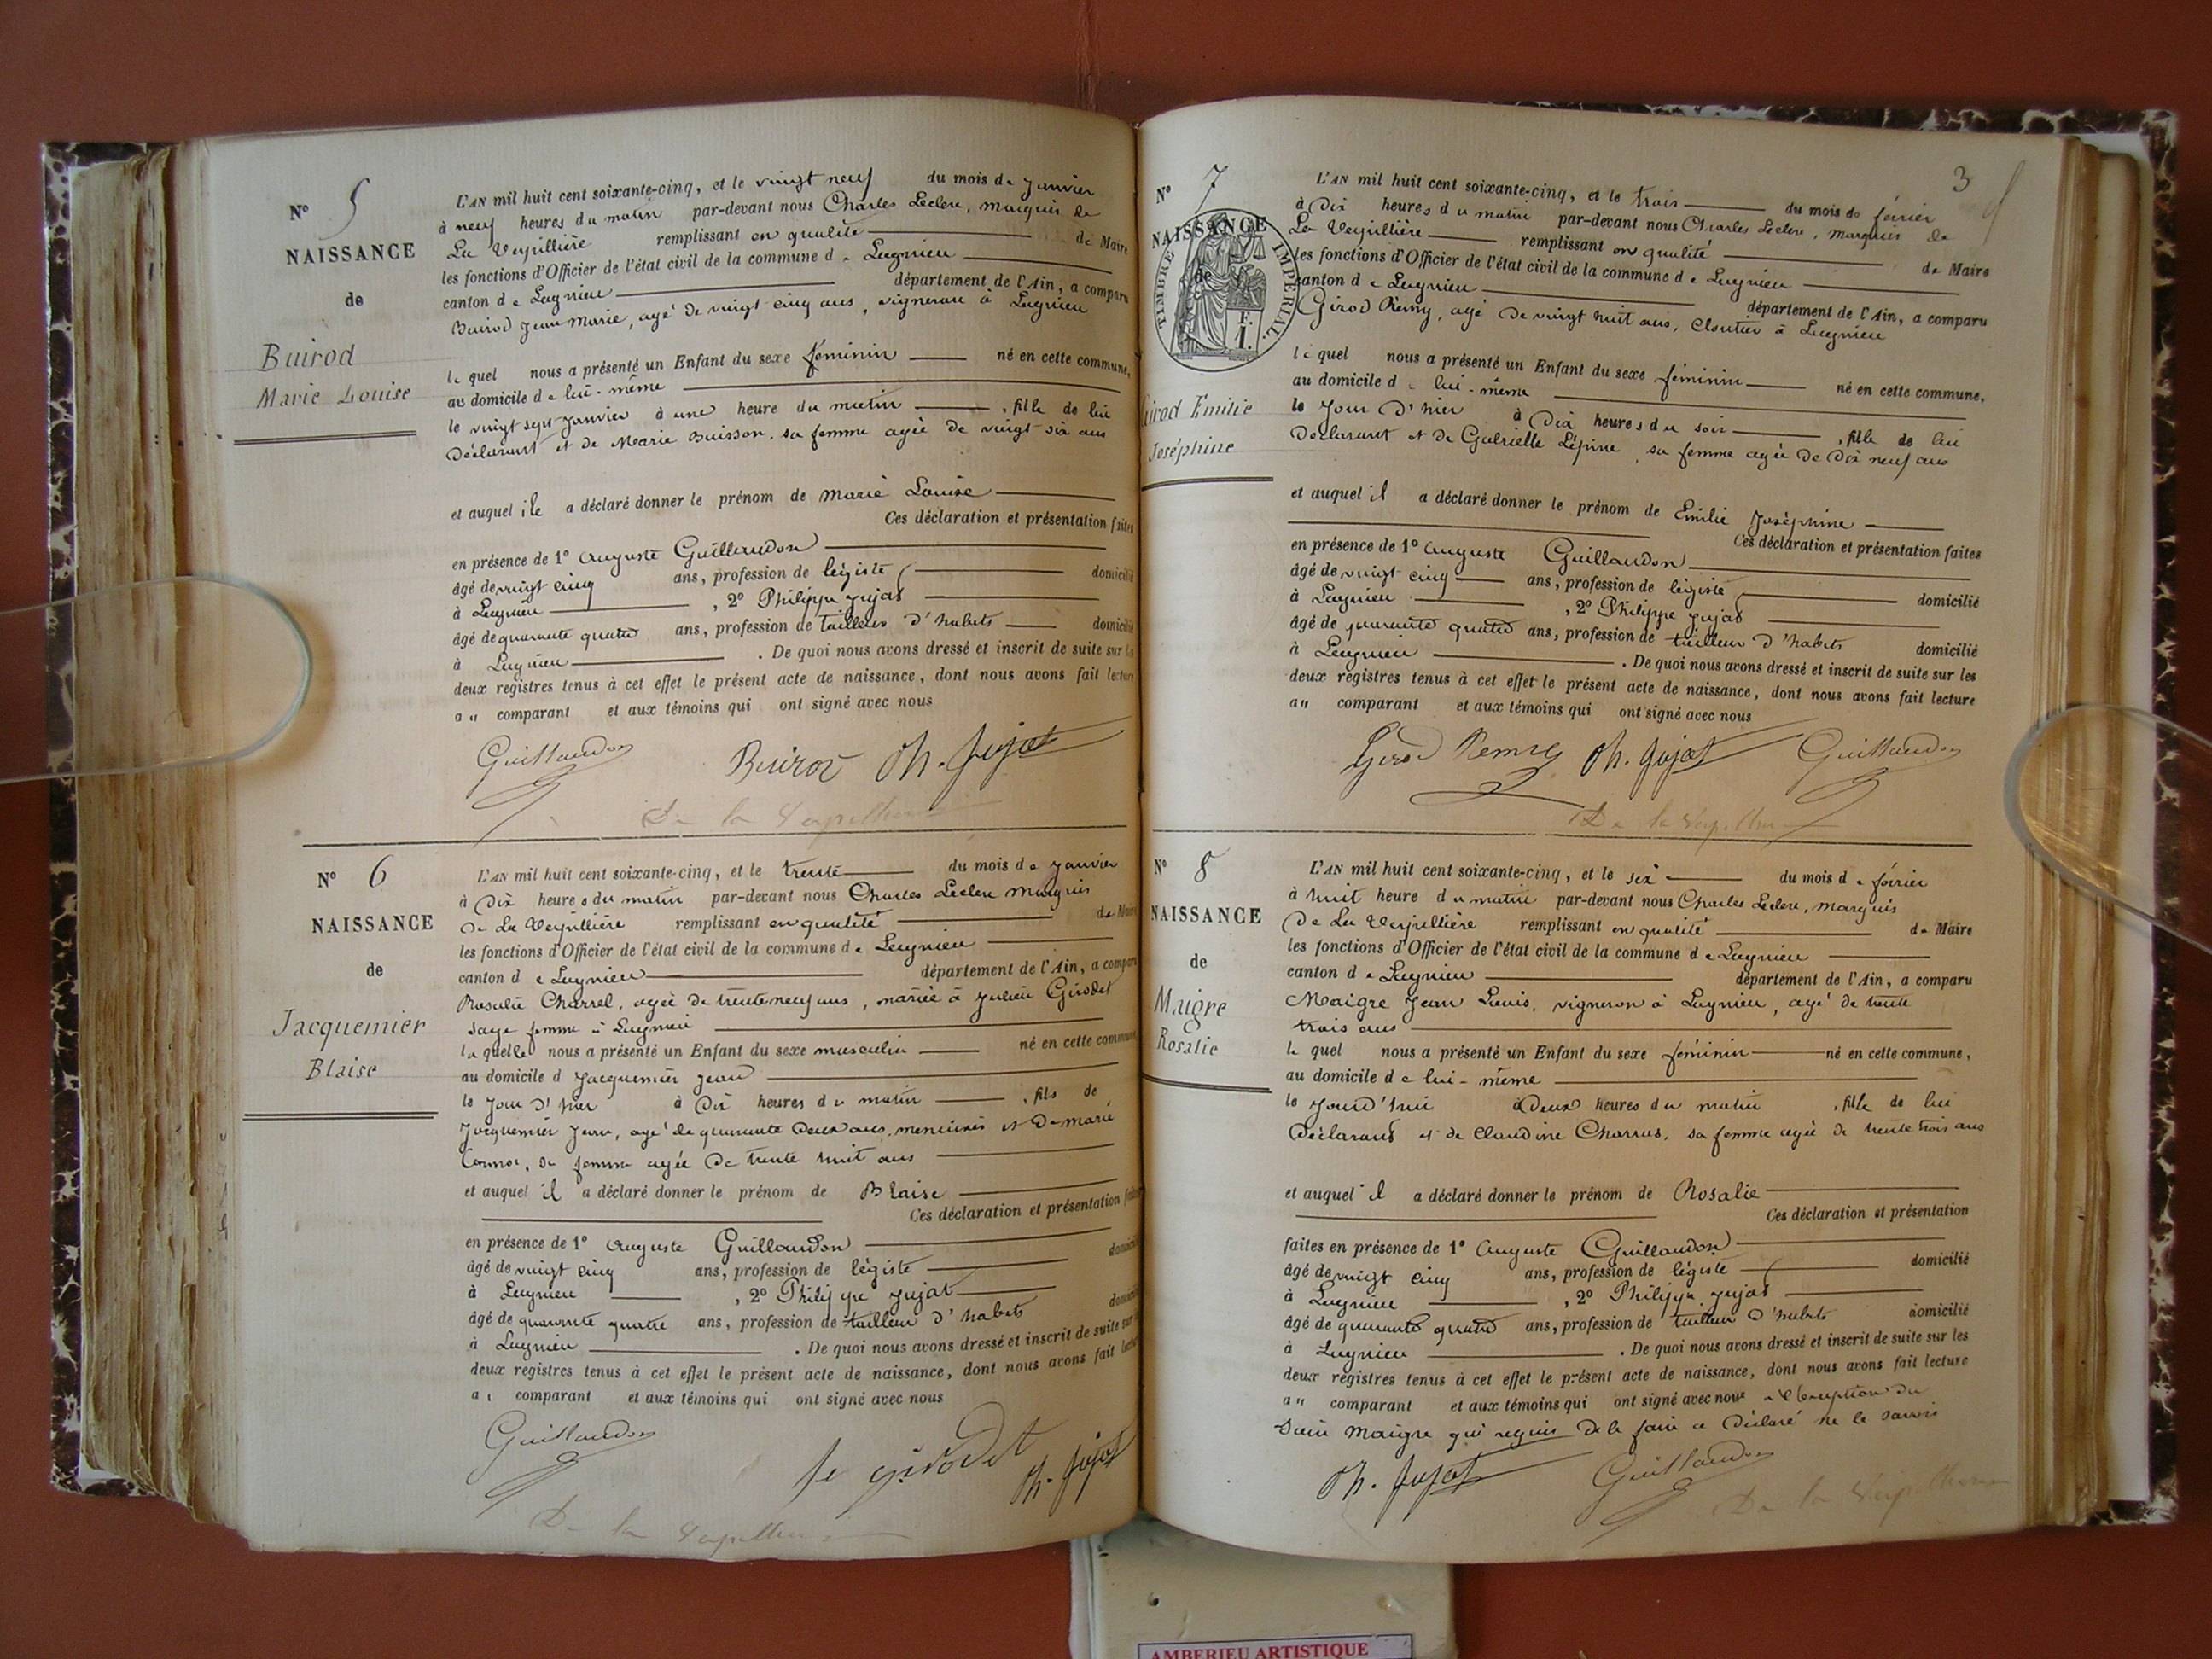 N° 5
NAISSANCE
de
Buirod
Marie Louise
L'AN mil huit cent soixante-cinq, et le vingt neuf du mois de janvier
à neuf heures du matin par-devant nous Charles Leclere, marquis de
La Verpillière remplissant en qualité de Maire
les fonctions d'Officier de l'état civil de la commune de Lagnieu
canton de Lagnieu département de l'Ain, a comparu
Buirod Jean Marie, agé de vingt cinq ans, vigneron à Lagnieu
le quel nous a présenté un Enfant du sexe féminin né en cette commune,
au domicile de lui-même
le vingt sept janvier à une heure du matin, fille de lui
Déclarant et de Marie Buisson, sa femme agée de vingt six ans
et auquel il a déclaré donner le prénom de Marie Louise
Ces déclaration et présentation faites
en présence de 1° Auguste Guillaudon
âgé de vingt cinq ans, profession de légiste domicilié
à Lagnieu, 2° Philippe Jujat
âgé de quarante quatre ans, profession de tailleur d'habits domicilié
à Lagnieu. De quoi nous avons dressé et inscrit de suite sur les
deux registres tenus à cet effet le présent acte de naissance, dont nous avons fait lecture
au comparant et aux témoins qui ont signé avec nous
Guillaudon Buirod Ph. Jujat
De la Verpillière
N° 6
NAISSANCE
de
Jacquemier
Blaise
L'AN mil huit cent soixante-cinq, et le trente du mois de janvier
à Dix heures du matin par-devant nous Charles Leclere Marquis
De La Verpillière remplissant en qualité de Maire
les fonctions d'Officier de l'état civil de la commune de Lagnieu
canton de Lagnieu département de l'Ain, a comparu
Rosalie Charrel, agée de trente neuf ans, mariée à Julien Girodet
sage femme à Lagnieu
la quelle nous a présenté un Enfant du sexe masculin né en cette commune
au domicile d Jacquemier Jean
le jour d'hier à Dix heures du matin, fils de
Jacquemier Jean, agé de quarante Deux ans, et De Marie
sa femme agée De trente huit ans
et auquel il a déclaré donner le prénom de Blaise
Ces déclaration et présentation faites
en présence de 1° Auguste Guillaudon
âgé de vingt cinq ans, profession de légiste domicilié
à Lagnieu, 2° Philippe Jujat
âgé de quarante quatre ans, profession de tailleur d'habits domicilié
à Lagnieu. De quoi nous avons dressé et inscrit de suite sur les
deux registres tenus à cet effet le présent acte de naissance, dont nous avons fait lecture
a comparant et aux témoins qui ont signé avec nous
Guillaudon fe girodet Ph. Jujat
De la Verpillière
3
N° 7
NAISSANCE
de
TIMBRE IMPERIAL
F.
1.
Girod Emilie
Joséphine
L'AN mil huit cent soixante-cinq, et le trois du mois de février
à Dix heures du matin par-devant nous Charles Leclere, marquis de
La Verpillière remplissant en qualité de Maire
les fonctions d'Officier de l'état civil de la commune de Lagnieu
canton de Lagnieu département de l'Ain, a comparu
Girod Rémy, agé De vingt huit ans, Cloutier à Lagnieu
le quel nous a présenté un Enfant du sexe féminin né en cette commune,
au domicile de lui-même
le jour D'hier à Dix heures du soir, fille de lui
Déclarant et de Gabrielle Lépine, sa femme agée De Dix neuf ans
et auquel il a déclaré donner le prénom de Emilie Joséphine
Ces déclaration et présentation faites
en présence de 1° Auguste Guillaudon
âgé de vingt cinq ans, profession de légiste domicilié
à Lagnieu, 2° Philippe Jujat
âgé de quarante quatre ans, profession de tailleur d'habits domicilié
à Lagnieu. De quoi nous avons dressé et inscrit de suite sur les
deux registres tenus à cet effet le présent acte de naissance, dont nous avons fait lecture
au comparant et aux témoins qui ont signé avec nous
Girod Remy Ph. Jujat Guillaudon
De la Verpillière
N° 8
NAISSANCE
de
Maigre
Rosalie
L'AN mil huit cent soixante-cinq, et le six du mois de février
à huit heure du matin par-devant nous Charles Leclere, Marquis
De La Verpillière remplissant en qualité de Maire
les fonctions d'Officier de l'état civil de la commune de Lagnieu
canton de Lagnieu département de l'Ain, a comparu
Maigre Jean Louis, vigneron à Lagnieu, agé de trente
trois ans
le quel nous a présenté un Enfant du sexe féminin né en cette commune,
au domicile de lui-même
le jourd'hui à Deux heures du matin, fille de lui
Déclarant et de Claudine Charrus, sa femme agée de trente trois ans
et auquel il a déclaré donner le prénom de Rosalie
Ces déclaration et présentation
faites en présence de 1° Auguste Guillaudon
âgé de vingt cinq ans, profession de légiste domicilié
à Lagnieu, 2° Philippe Jujat
âgé de quarante quatre ans, profession de tailleur D'habits domicilié
à Lagnieu. De quoi nous avons dressé et inscrit de suite sur les
deux registres tenus à cet effet le présent acte de naissance, dont nous avons fait lecture
au comparant et aux témoins qui ont signé avec nous à l'exception du
Sieur Maigre qui requis de le faire a Déclaré ne le savoir
Ph. Jujat Guillaudon
De la Verpillière
AMBERIEU ARTISTIQUE